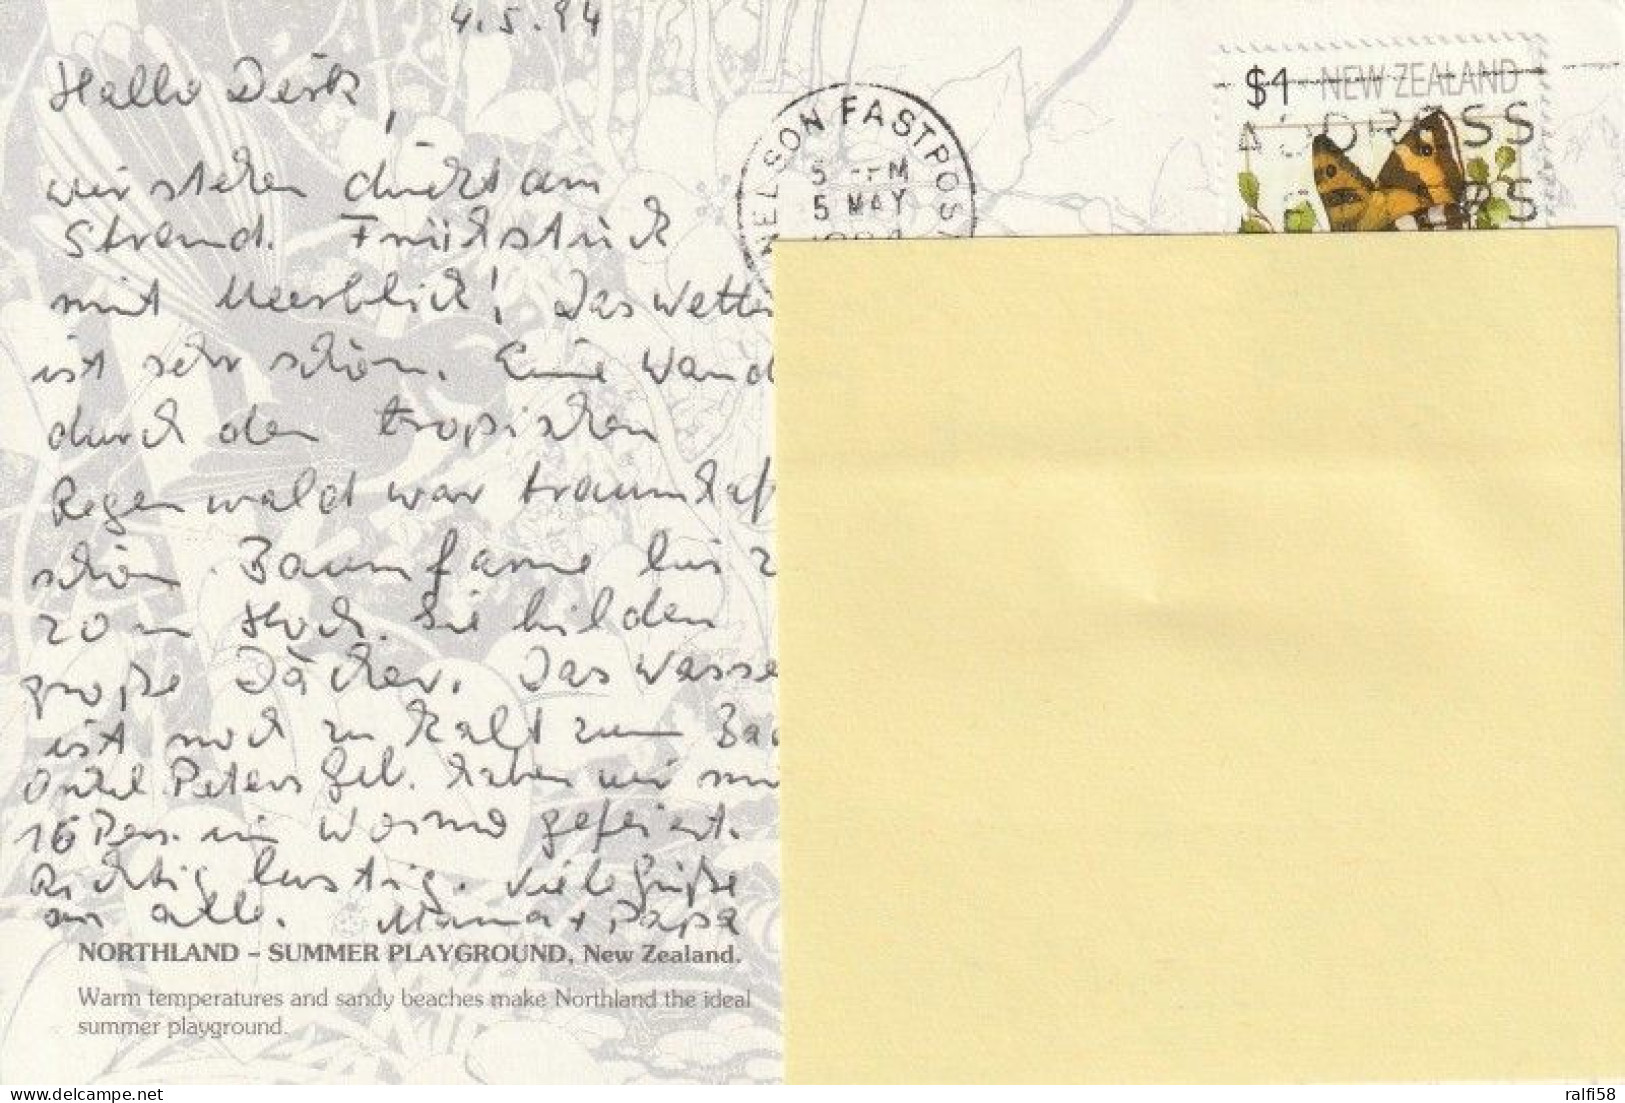 4.5.94
Hallo Dirk,
wir stehen direkt am
Strand. Frühstück
mit Meerblick! Das Wette
ist sehr schön. Eine Wand
durch den tropischen
Regenwald war traumhaf
schön. Baumfarne bis z
20 m Hoch. Sie bilden
große Dächer. Das Wasse
ist noch zu kalt zum Bad
Onkel Peters Geb. haben wir
16 Pers. im gefeiert.
Richtig lustig. Viele Grüße
an alle. Mama + Papa
NORTHLAND – SUMMER PLAYGROUND, New Zealand.
Warm temperatures and sandy beaches make Northland the ideal
summer playground.
NELSON FASTPOS
5 -PM
5 MAY
$1 NEW ZEALAND
RESS
RS
ralfi58